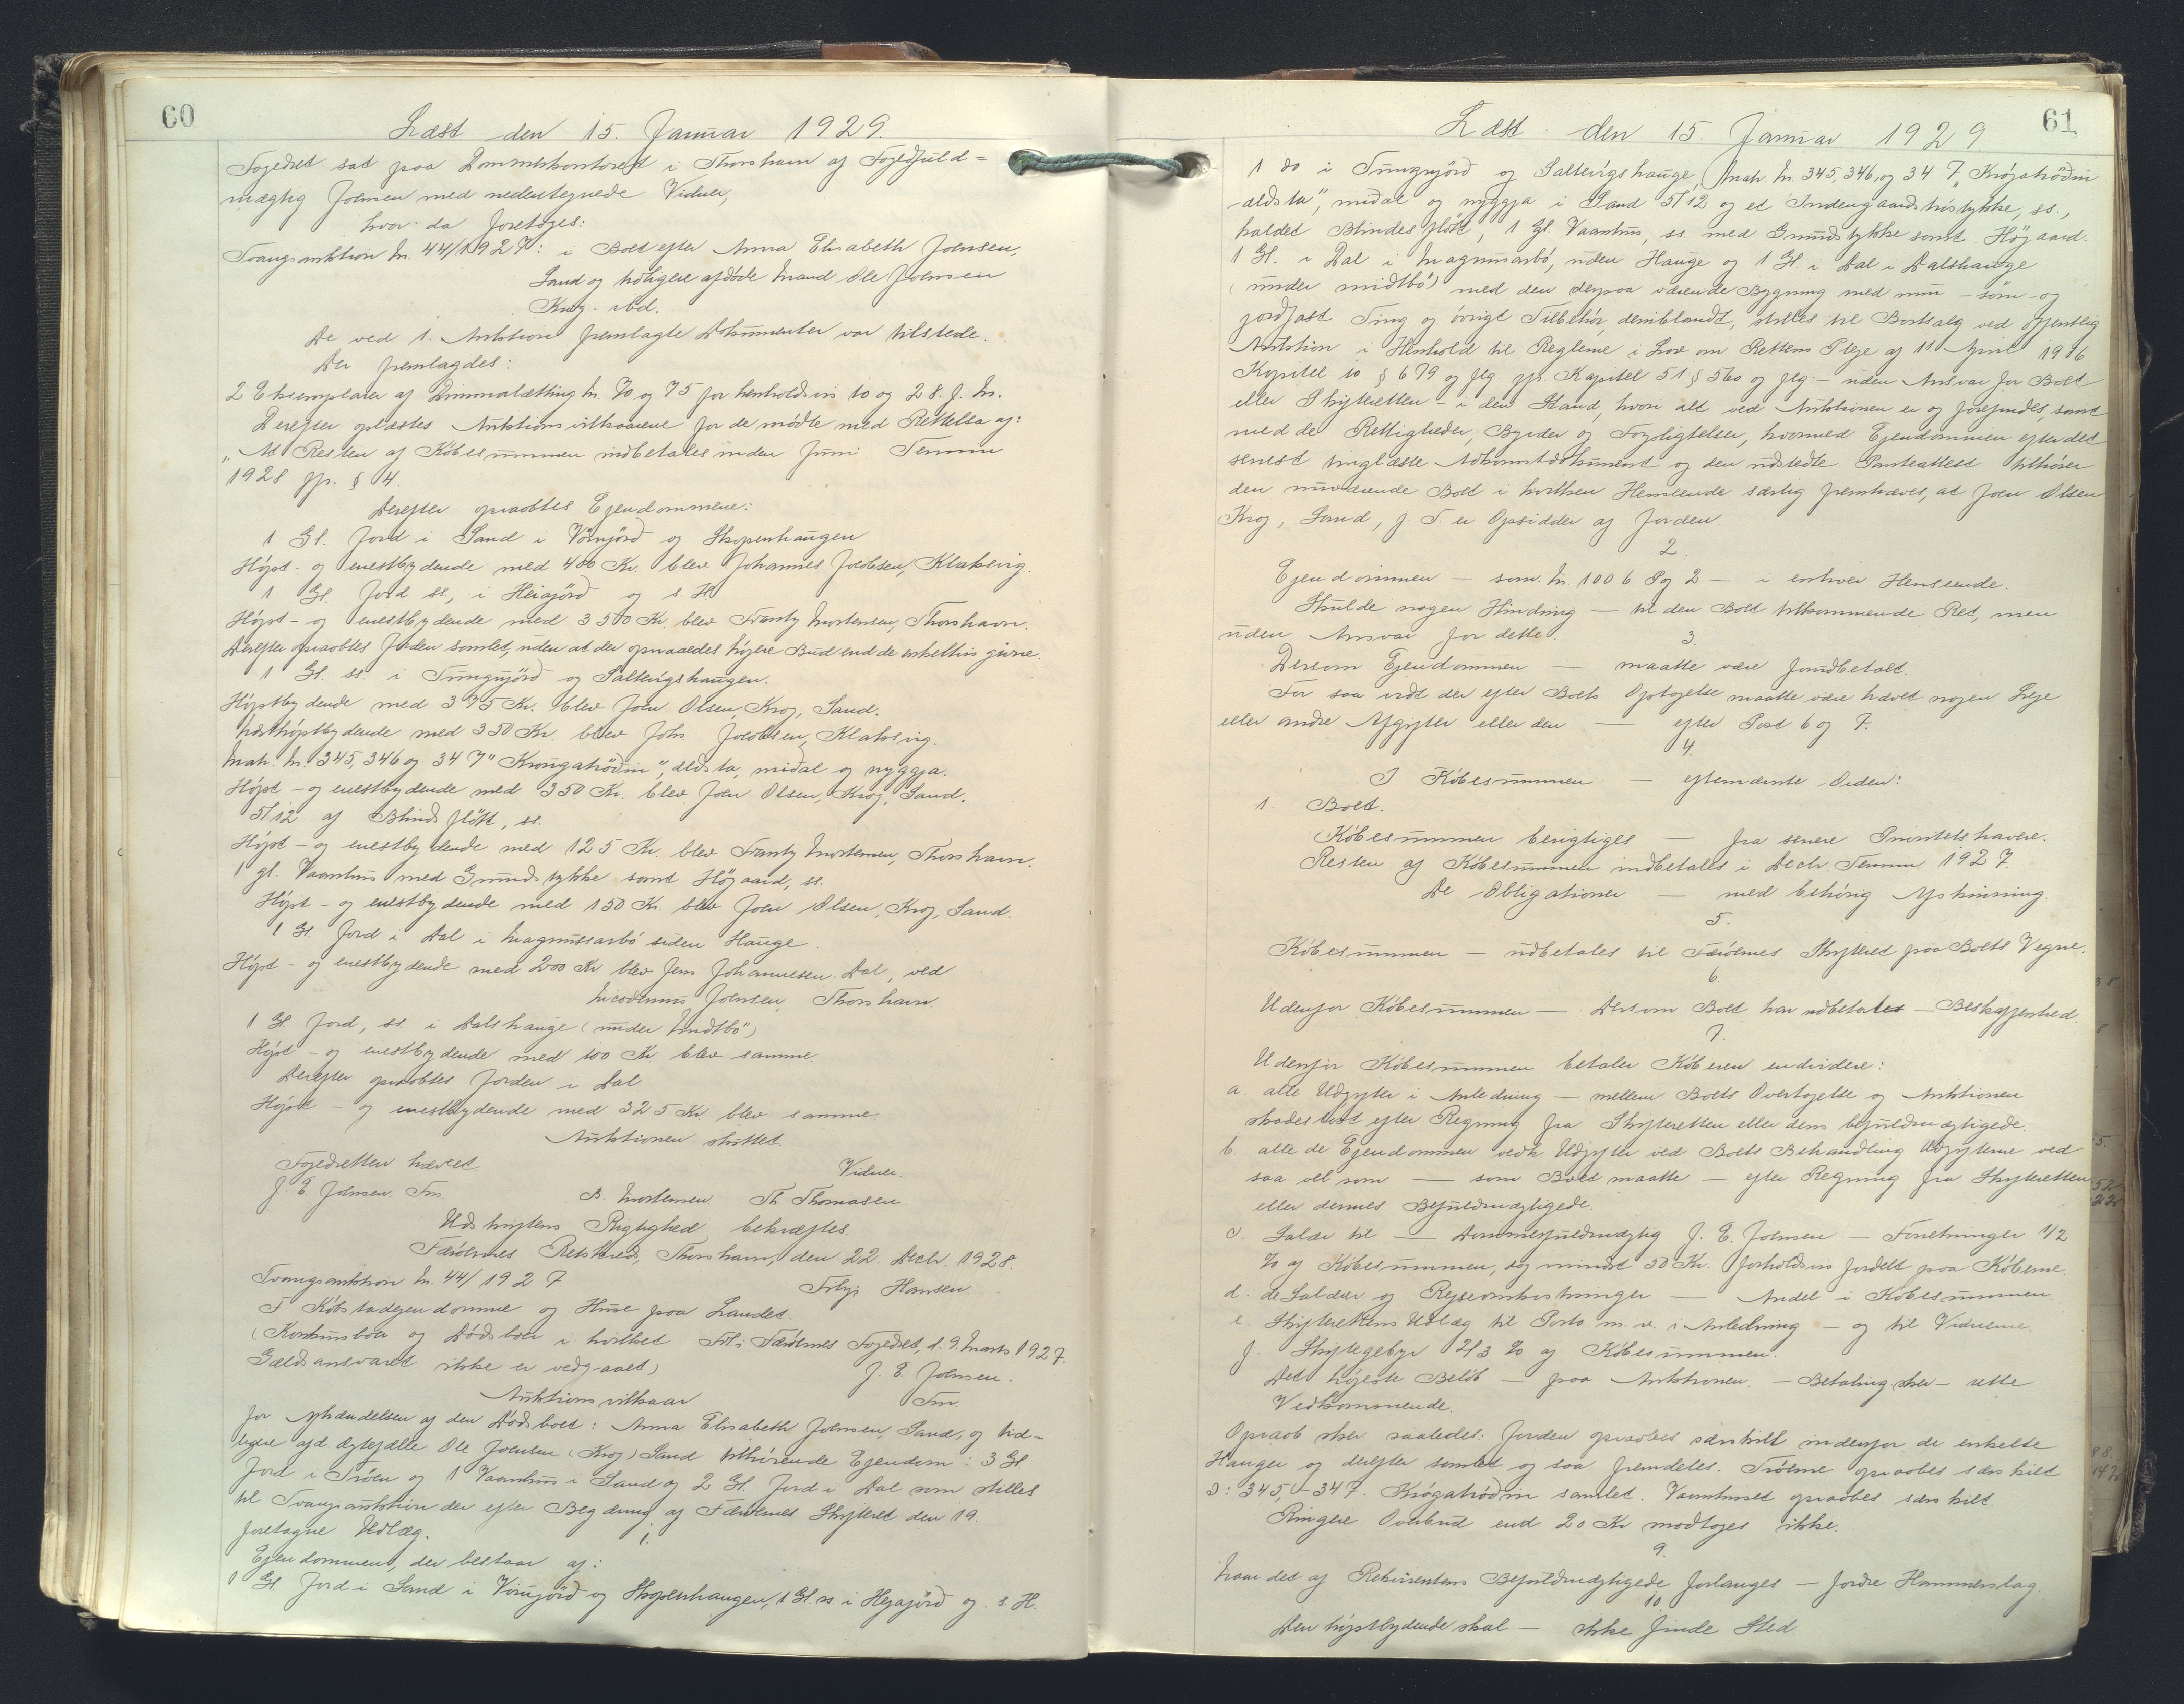 60
Læst den 15. Januar 1929.
Fogedret sat paa Dommerkontoret i Thorshavn af Fogedfuld=
mægtig Joensen med nedentegnede Vidner,
hvor da foretoges:
Tvangsauktion Nr. 44/1927: i Boet efter Anna Elisabeth Joensen,
Sand og tidligere afdøde Mand Ole Joensen
Krog ibd.
De ved 1. Auktion fremlagte Dokumenter var tilstede.
Der fremlagdes:
2 Eksemplarer af Dimmalætting Nr. 70 og 75 for henholdsvis 10 og 28. f. M.
Derefter oplæstes Auktionsvilkaarene for de mødte med Rettelse af:
"At Resten af Købesummen indbetales inden Juni Termin
1928 jfr. § 4.
Derefter opraabtes Ejendommene:
1 Gl. Jord i Sand i Vørnjørð og Skopenhaugen
Højst- og enestbydende med 400 Kr. blev Johannes Jacobsen, Klaksvig.
1 Gl. Jord ss., i Heiajørð og s H
Højst- og enestbydende med 350 Kr. blev Frantz Mortensen, Thorshavn.
Derefter opraabtes Jorden samlet, uden at der opnaaedes højere Bud end de enkeltvis givne.
1 Gl. ss. i Tungujørð og Saltvigshaugen.
Højstbydende med 375 Kr. blev Joen Olsen, Krog, Sand.
Næsthøjstbydende med 350 Kr. blev Johs Jacobsen, Klaksvig.
Matr. Nr. 345, 346 og 347 "Krougatrøðin", eldsta, miðal og nyggja.
Højst- og enestbydende med 350 Kr. blev Joen Olsen, Krog, Sand.
5/12 af Blindsfløtt, ss.
Højst- og enestbydende med 125 Kr. blev Frantz Mortensen, Thorshavn.
1 gl. Vaanhus med Grundstykke samt Høgaard, ss.
Højst- og enestbydende med 150 Kr. blev Joen Olsen, Krog, Sand.
1 Gl. Jord i Dal i Magnussarbø uden Hauge.
Højst- og enestbydende med 200 Kr blev Jens Johannesen, Dal, ved
Nicodemus Joensen, Thorshavn.
1 Gl. Jord, ss. i Dalshauge (under Midtbø")
Højst- og enestbydende med 100 Kr. blev samme
Derefter opraabtes Jorden i Dal
Højst- og enestbydende med 325 Kr blev samme.
Auktionen sluttet.
Fogedretten hævet. Vidner.
J. E. Joensen. Fm. D. Mortensen. Th Thomasen
Udskriftens Rigtighed bekræftes.
Færøernes Retskreds, Thorshavn, den 22. Decbr. 1928.
Tvangsauktion Nr. 44/1927 Hansen.
F Købstadejendomme og Huse paa Landet.
(Konkursboer og Dødsboer i hvilket Frl. i Færøernes Fogedret, d. 9. Marts 1927.
Gældsansvaret ikke er vedgaaet) J. E. Joensen.
Auktionsvilkaar Fm
for Afhændelsen af den Dødsboet: Anna Elisabeth Joensen, Sand, og tid=
ligere afd Ægtefælle Ole Joensen (Krog) Sand tilhørende Ejendom: 3 Gl
Jord i Trøen og 1 Vaanhus i Sand og 2 Gl. Jord i Dal som stilles
til Tvangsauktion der efter Begæring af Færøernes Skifteret den 19.
foretagne Udlæg.
1.
Ejendommen, der bestaar af:
1 Gl. Jord i Sand i Vørnjørð og Skopenhaugen, 1 Gl. ss. i Hejajørð og s. H.
61
Læst den 15. Januar 1929.
1 do i Tungujørð og Saltvigshauge, Matr. Nr. 345, 346, og 347, "Krógatrøðin
eldsta", miðal og nyggja i Sand 5/12 og et Indengaardstrøstykke, ss.,
kaldet Blindesfløtt, 1 Gl Vaanhus, ss. med Grundstykke samt Høgaard.
1 Gl. i Dal i Magnusarbø, uden Hauge og 1 Gl. i Dal i Dalshauge
(under miðtbø) med den derpaa værende Bygning med mur- søm- og
jordfast Ting og øvrigt Tilbehør, deriblandt, stilles til Bortsalg ved offentlig
Auktion i Henhold til Reglerne i Lov om Rettens Pleje af 11 April 1916
Kapitel 10 § 679 og flg. jfr. Kapitel 51 § 560 og flg.- uden Ansvar for Boet
eller Skifteretten - i den Stand, hvori alt ved Auktionen er og forefindes, samt
med de Rettigheder, Byrder og Forpligtelser, hvormed Ejendommen efter det
senest tinglæste Adkomstdokument og den udstedte Panteattest tilhører
den nuværende Boet i hvilken Henseende særlig fremhæves, at Joen Olsen
Krog, Sand, f. T. er Opsidder af Jorden.
2.
Ejendommen - som Nr. 1006 8 og 2 - i enhver Henseende.
Skulde nogen Hindring - til den Boet tilkommende Ret, men
uden Ansvar for dette.
3.
Dersom Ejendommen - maatte være forudbetalt.
For saa vidt der efter Boets Optagelse maatte være hævet nogen Leje
eller andre Afgifter eller den - efter Post 6 og 7.
4.
I Købesummen - eftern ævnte Orden:
1. Boet.
Købesummen berigtiges - fra senere Prioritetshavere.
Resten af Købesummen indbetales i Decbr. Termin 1927.
De Obligationer - med behørig Afskrivning.
5.
Købesummen - udbetales til Færøernes Skifteret paa Boets Vegne.
6.
Udenfor Købesummen - Dersom Boet har udbetalt - Beskaffenhed.
7.
Udenfor Købesummen betaler Køberen endvidere:
a. alle Udgifter i Anledning - mellem Boets Overtagelse og Auktionen
skadesløst efter Regning fra Skifteretten eller dens befuldmægtigede.
b. alle de Ejendommen vedk Udgifter ved Boets Behandling Udgifterne ved
saa vel som - som Boet maatte - efter Regning fra Skifteretten
eller dennes Befuldmægtigede.
c. Salær til - Dommerfuldmægtig J. E. Joensen - Forretninger 1/2
% af Købesummen, dog mindst 50 Kr. forholdsvis fordelt paa Køberne.
d. de Salær og Rejseomkostninger - Andel i Købesummen.
e. Skifterettens Udlæg til Porto m. v. i Anledning - og til Vidnerne.
f. Skiftegebyr 2/3 % af Købesummen.
Det højeste Beløb - paa Auktionen. - Betaling sker - rette
Vedkommende.
Opraab sker saaledes: Jorden opraabes særskilt indenfor de enkelte
Hauger og derefter samlet og saa fremdeles. Trøerne opraabes særskilt
ɔ: 345,-347. Krógatrøðin samlet. Vaanhuset opraabes særskilt.
Ringere Overbud end 20 Kr modtages ikke.
9.
Naar det af Rekvirentens Befuldmægtigede forlanges - fordre Hammerslag.
10.
Den højstbydende skal - ikke finde Sted.